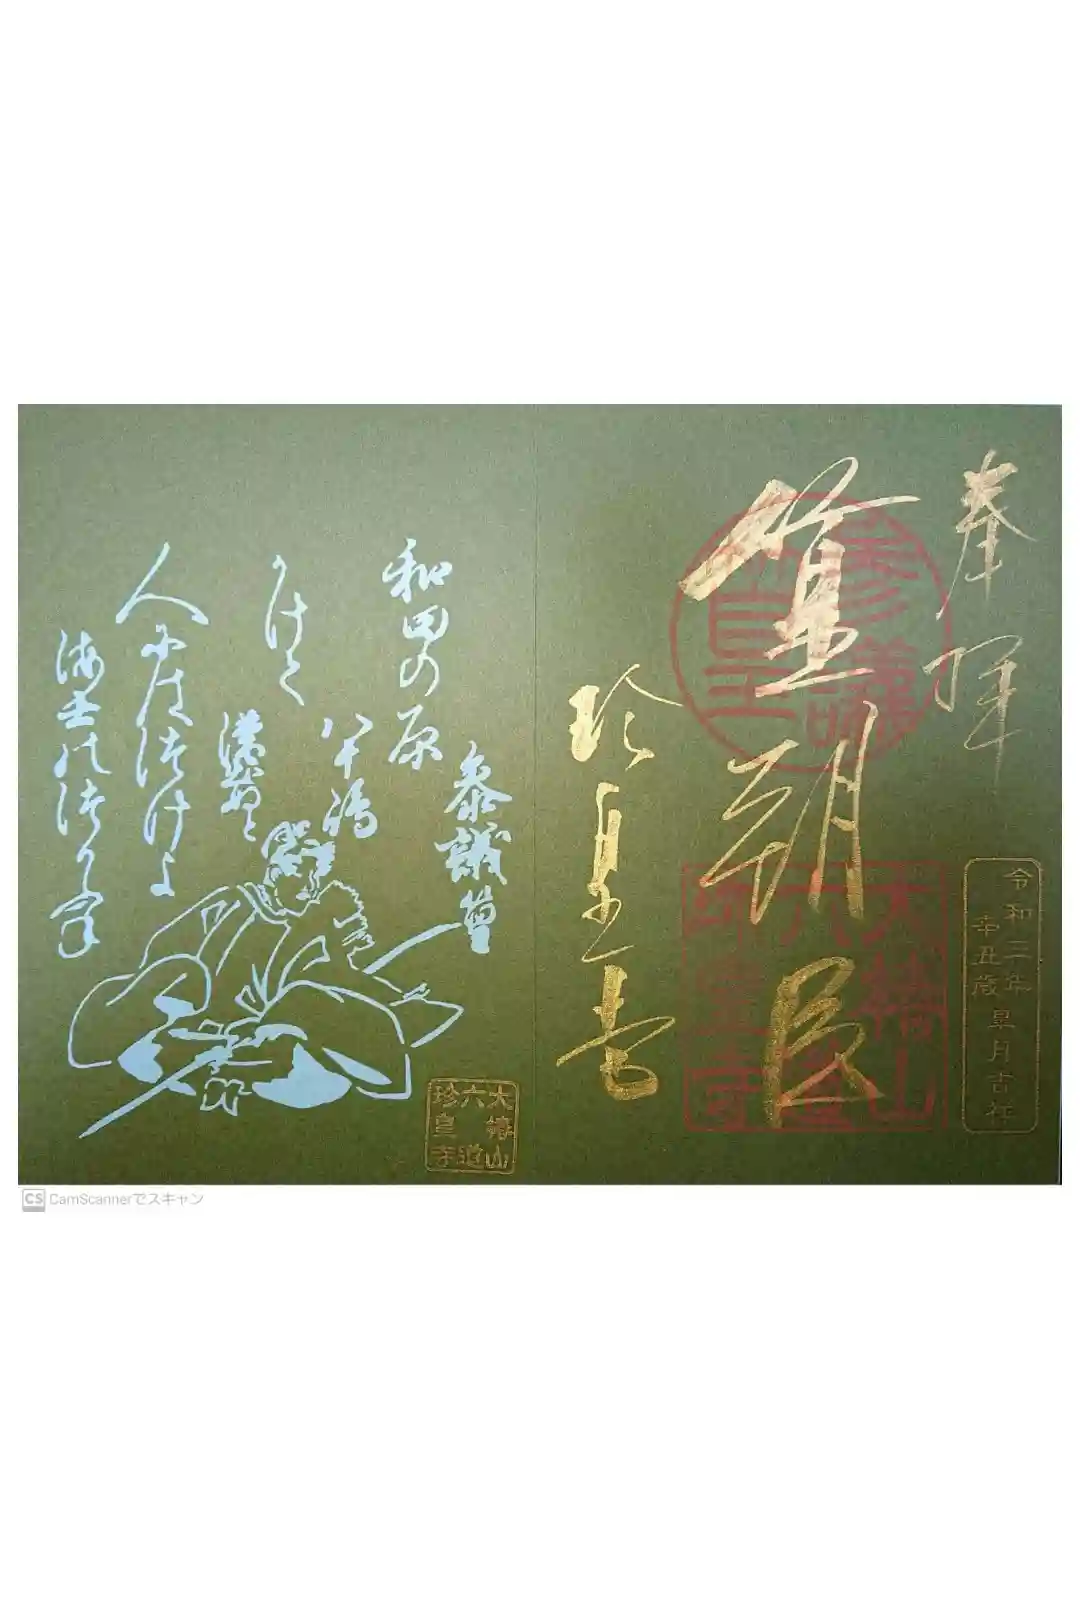 奉拝
篁朝臣
珍皇寺
令和三年
辛丑歳
皐月吉祥
大椿山
六道
珍皇寺
参議篁
和田の原
八十嶋
かけて
漕出ぬと
人にはつけよ
海士のつり舟
大椿山
六道
珍皇寺
CS CamScannerでスキャン